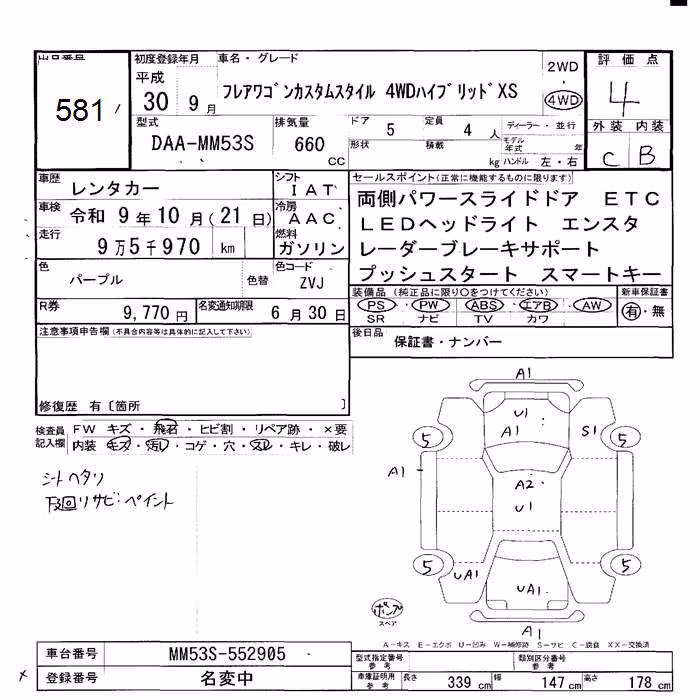 出品番号
581
初度登録年月
平成
30 9月
車名・グレード
フレアワゴンカスタムスタイル 4WDハイブリッドXS
2WD
4WD
評価点
4
外装 内装
C B
型式
DAA-MM53S
排気量
660
CC
ドア
5
定員
4 人
形状
積載
kg
ディーラー・並行
モデル年式 年
ハンドル 左・右
車歴
レンタカー
シフト
IAT
車検
令和 9年10月(21日)
冷房
AAC
走行
9万5千970 km
燃料
ガソリン
色
パープル
色替
色コード
ZVJ
R券
9,770円
名変通知期限
6月30日
セールスポイント(正常に機能するものに限ります)
両側パワースライドドア ETC
LEDヘッドライト エンスタ
レーダーブレーキサポート
プッシュスタート スマートキー
装備品(純正品に限り○をつけてください)
PS・PW・ABS・エアB・AW
SR ナビ TV カワ
新車保証書
有・無
後日品
保証書・ナンバー
注意事項申告欄(不具合内容等は具体的に記入して下さい)
修復歴 有〔箇所 〕
検査員記入欄
FW キズ・飛石・ヒビ割・リペア跡・×要
内装・キズ・汚れ・コゲ・穴・スレ・キレ・破レ
シートヘタリ
下回りサビ・ペイント
A1
U1
A1
S1
5
5
A1
A2
U1
5
5
UA1
UA1
A1
ポンプ
スペア
A-キズ E-エクボ U-凹み W-補修跡 S-サビ C-腐食 XX-交換済
車台番号
MM53S-552905
登録番号
名変中
型式指定番号
参考
類別区分番号
参考
車庫証明用
参考
長さ 339 cm 幅 147 cm 高さ 178 cm